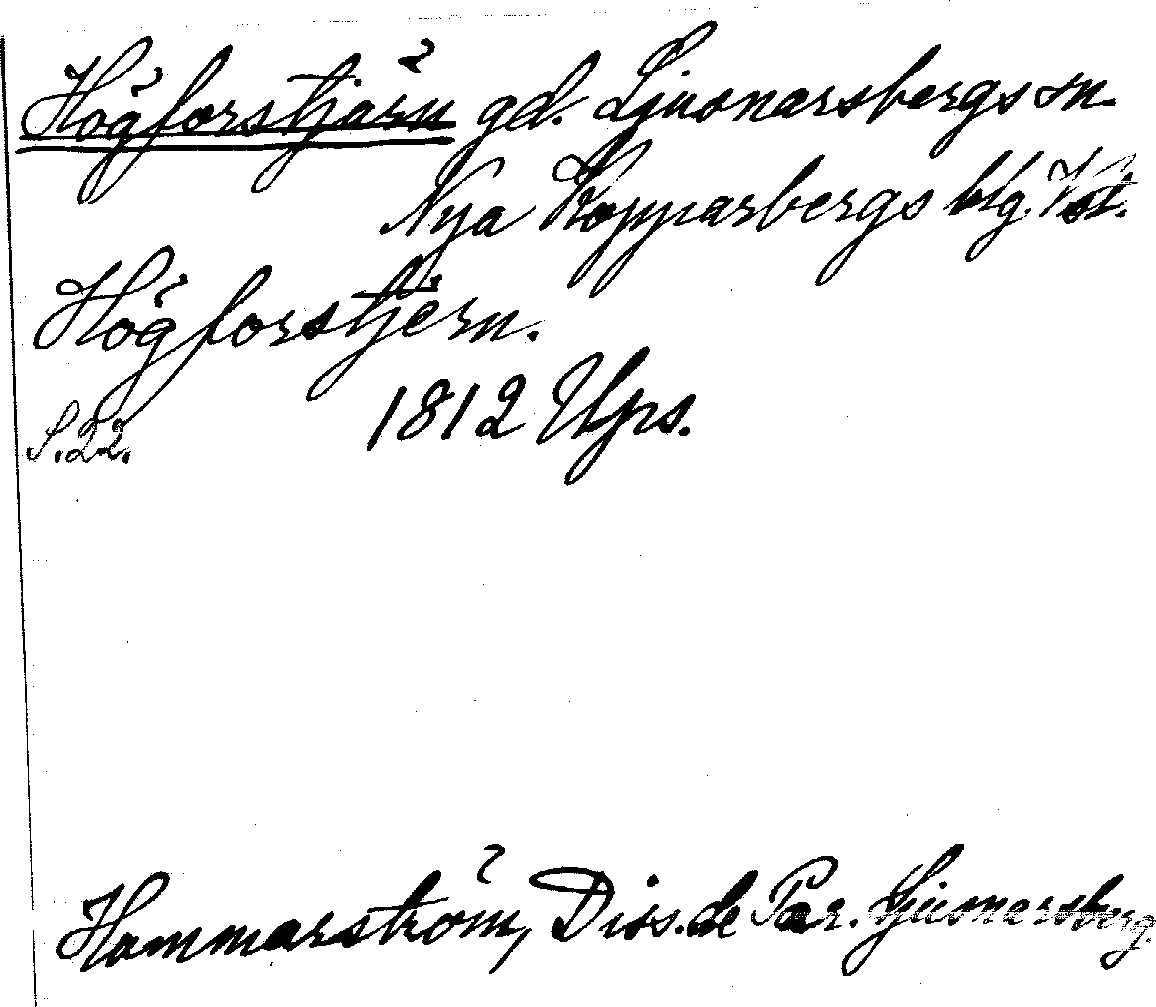 Högforstjärn gd. Ljusnarsbergs sn.
Nya Kopparbergs blg. Vstl.
Högforstjern.
S.22. 1812 Ups.
Hammarström, Diss. de Par. Ljusnarsberg.